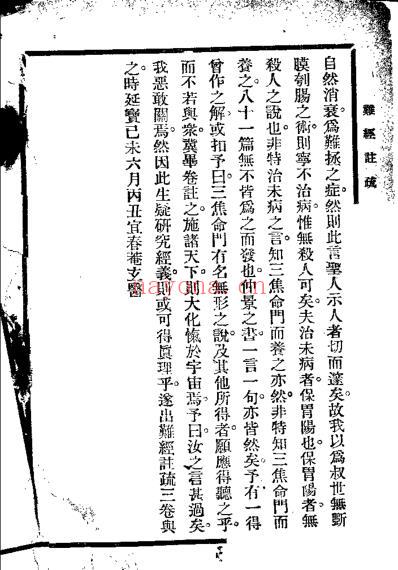 難經註疏
自然消衰。爲難拯之症。然則此言聖人示人者切而邃矣。故我以爲叔世無斷
膜刳腸之術。則寧不治病。惟無殺人可矣。夫治未病者。保胃陽也。保胃陽者無
殺人之說也。非特治未病之言。知三焦命門而養之亦然。非特知三焦命門而
養之。八十一篇無不皆爲之而發也。仲景之書一言一句。亦皆然矣。予有一得
曾作之解。或扣予曰。三焦命門有名無形之說。及其他所得者。願應得聽之乎。
而不若與衆冀畢卷註之施諸天下。則大化愾於宇宙焉。予曰。汝之言甚過矣。
我惡敢關焉。然因此生疑。研究經義。則或可得眞理乎。遂出難經註疏三卷與
之。時延寶己未六月丙丑宜春菴玄醫
nayona.cn